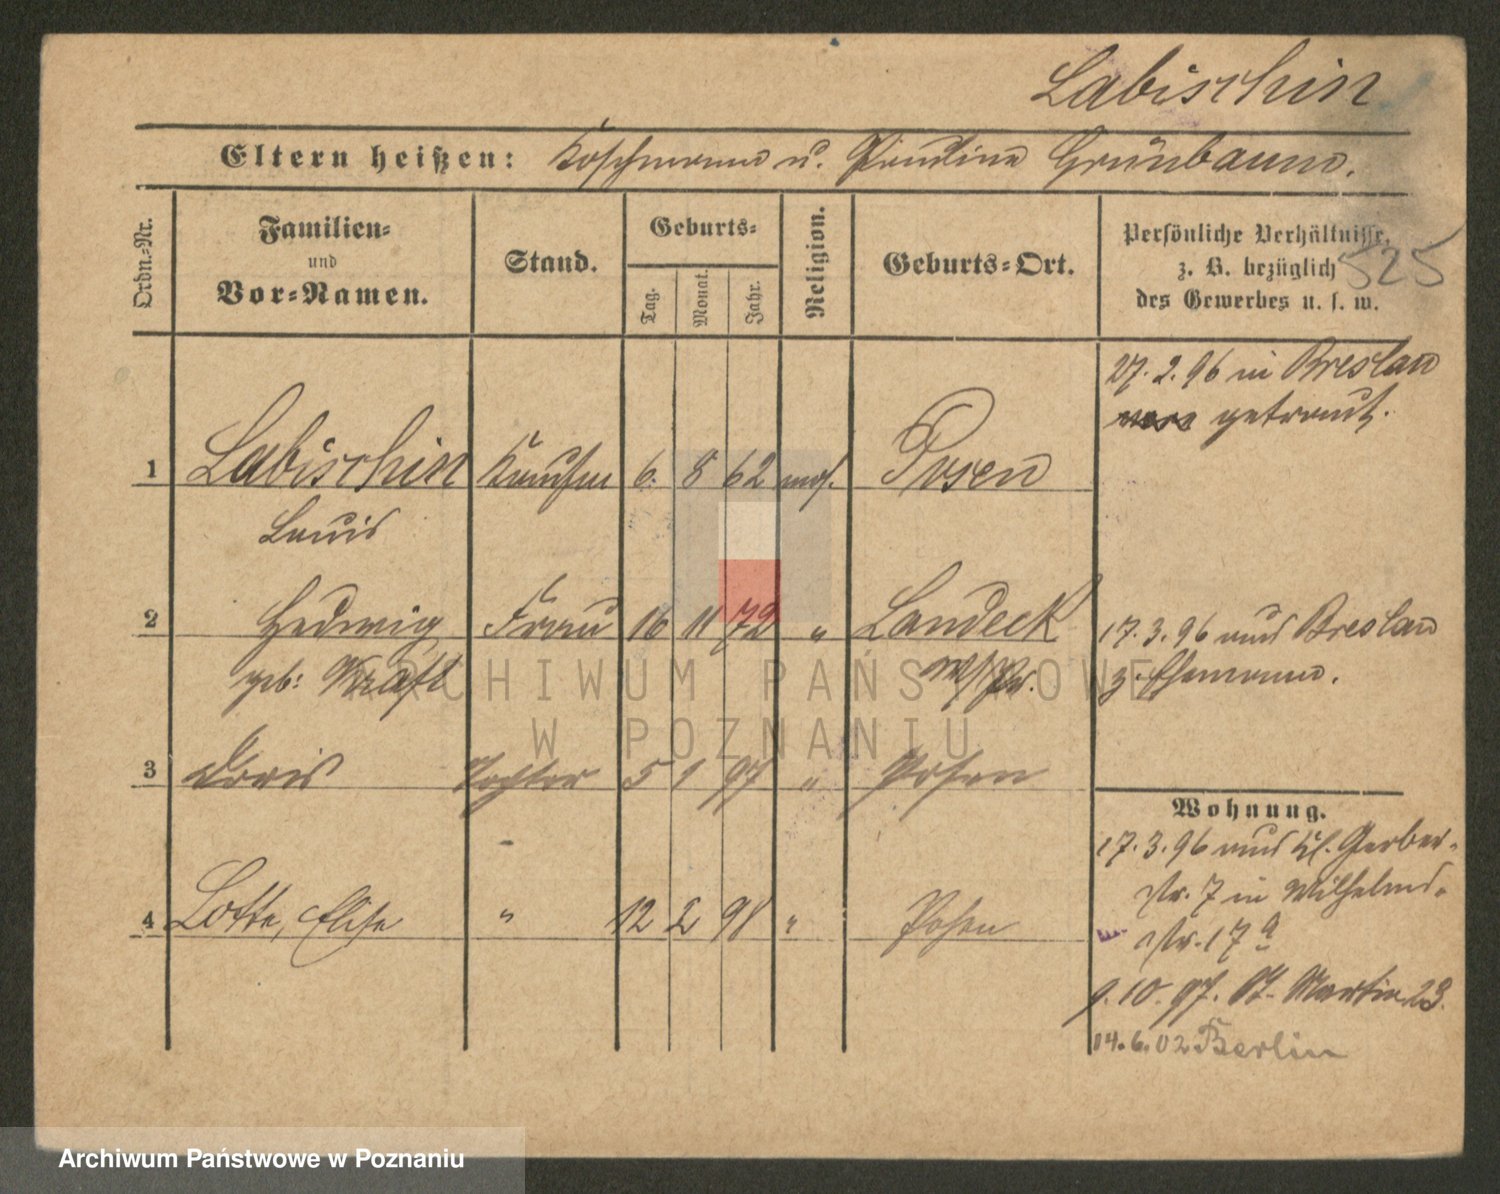 Labischin
Eltern heißen: Koschmann u. Pauline Grünbaum.
Ordn.-Nr.
Familien-
und
Vor-Namen.
Stand.
Geburts-
Tag.
Monat.
Jahr.
Religion.
Geburts-Ort.
Persönliche Verhältnisse,
z. B. bezüglich
des Gewerbes u. s. w.
525
27. 2. 96 in Breslau
getraut.
1 Labischin Kaufm 6. 8 62 mos. Posen
Louis
2 Hedwig Frau 16 11 72 " Landeck
geb: Kraft W/Pr.
17. 3. 96 aus Breslau
z. Ehemann.
3 Doris Tochter 5 1 97 " Posen
4 Lotte, Elise " 12 2 98 " Posen
Wohnung.
17. 3. 96 aus Kl. Gerber-
str. 7 in Wilhelms-
str. 17 a
9. 10. 97. St. Martin 23.
14. 6. 02 Berlin
ARCHIWUM PAŃSTWOWE
W POZNANIU
Archiwum Państwowe w Poznaniu